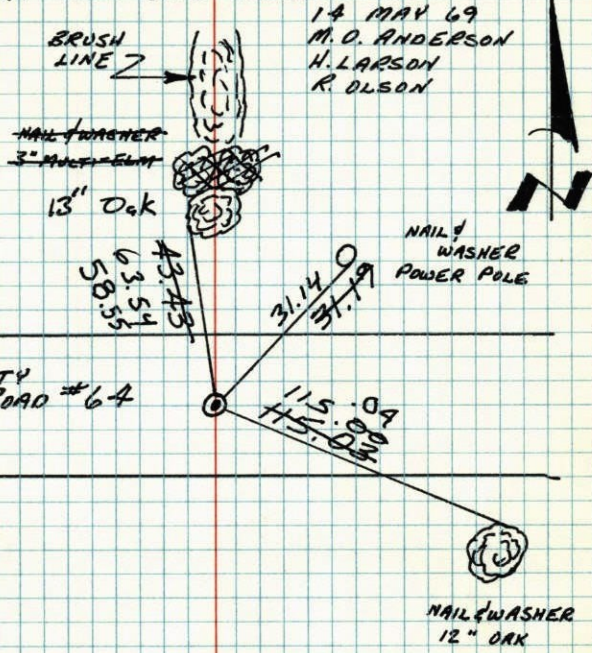 14 MAY 69
M.O. ANDERSON
H. LARSON
R. OLSON
BRUSH
LINE
NAIL & WASHER
3" MULTI-ELM
13" Oak
N
NAIL &
WASHER
POWER POLE
43.43
63.54
58.55
31.14
31.19
TY
OAD #64
115.04
115.03
NAIL & WASHER
12" OAK